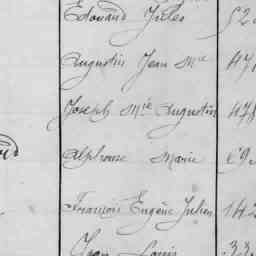 Edouard Jules 52
Augustin Jean Mie 47
Joseph Mie Augustin 478
Alphonse Marie
François Eugène Julien 142
Jean Louis 33